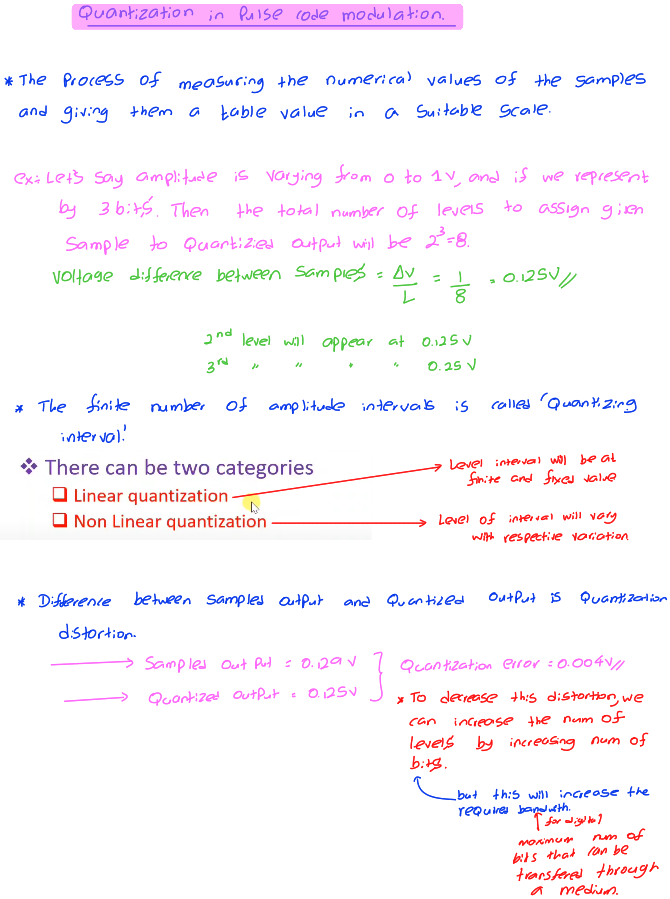 Quantization in Pulse code modulation.
* The Process of measuring the numerical values of the samples
and giving them a table value in a suitable scale.
ex:- Let's say amplitude is varying from 0 to 1v, and if we represent
by 3 bits. Then the total number of levels to assign given
sample to Quantizied output will be 2³=8.
Voltage difference between samples = ΔV/L = 1/8 = 0.125V//
2nd level will appear at 0.125 V
3rd " " " " 0.25 V
* The finite number of amplitude intervals is called 'Quantizing
interval'
❖ There can be two categories
❑ Linear quantization
Level interval will be at
finite and fixed value
❑ Non Linear quantization
Level of interval will vary
with respective variation
* Difference between sampled output and Quantized output is Quantization
distortion.
Sampled Out Put = 0.129 V
Quantized output = 0.125V
Quantization error = 0.004V//
* To decrease this distortion, we
can increase the num of
levels by increasing num of
bits.
but this will increase the
required bandwith.
for digital
maximum num of
bits that can be
transfered through
a medium.